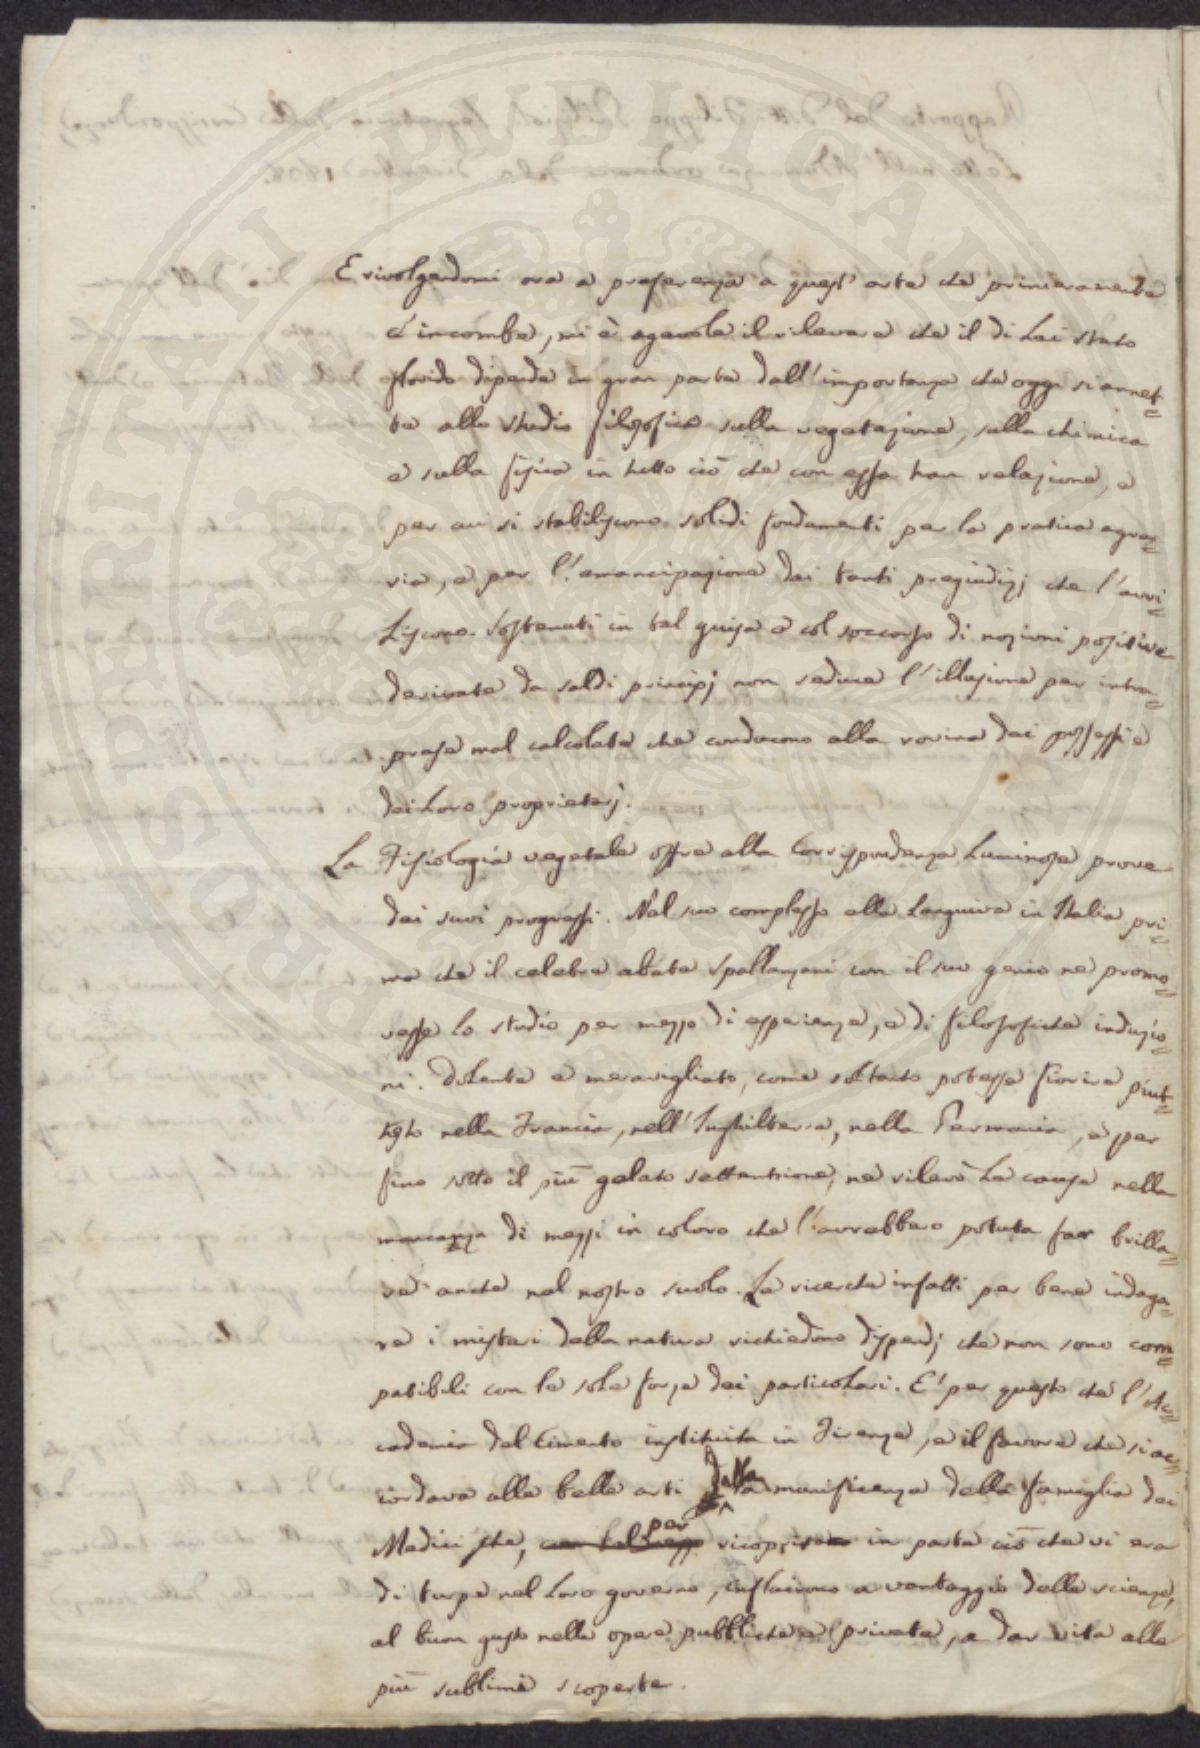 E rivolgendomi ora a preferenza a quest' arte che primieramente
c' incombe, mi è agevole il rilevare che il di Lei stato
florido dipende in gran parte dall' importanza che oggi si annet=
te allo studio filosofico sulla vegetazione, sulla chimica
e sulla fisica in tutto ciò che con essa han relazione, e
per cui si stabiliscono solidi fondamenti per la pratica agra=
ria, e per l' emancipazione dai tanti pregiudizj che l' avvi=
liscono. Sostenuti in tal guisa e col soccorso di nozioni positive
derivate da saldi principj non seduce l' illusione per intra=
prese mal calcolate che conducono alla rovina dei possessi e
dei Loro proprietarj.
La Fisiologia vegetale offre alla Corrispondenza Luminose prove
dei suoi progressi. Nel suo complesso ella Languiva in Italia pri=
ma che il celebre abate Spallanzani con il suo genio ne promo=
vesse lo studio per mezzo di esperienze, e di filosofiche induzio=
ni. Dolente e meravigliato, come soltanto potesse fiorire piut=
tosto nella Francia, nell' Inghilterra, nella Germania, e per
fino sotto il più gelato settentrione, ne rilevò La causa nella
mancanza di mezzi in coloro che l' avrebbero potuta far brilla=
re anche nel nostro suolo. Le ricerche infatti per bene indaga=
re i misteri della natura richiedono dispendj che non sono com=
patibili con le sole forze dei particolari. E' per questo che l' Ac=
cademia del Cimento instituita in Firenze, e il favore che si ac=
cordava alle belle arti dalla munificenza della famiglia dei
Medici che, con tal mezzo per ricoprire in parte ciò che vi era
di turpe nel Loro governo, influirono a vantaggio delle scienze,
al buon gusto nelle opere pubbliche e private, e a dar vita alle
più sublimi scoperte.
PROSPERITATI PUBLICAE